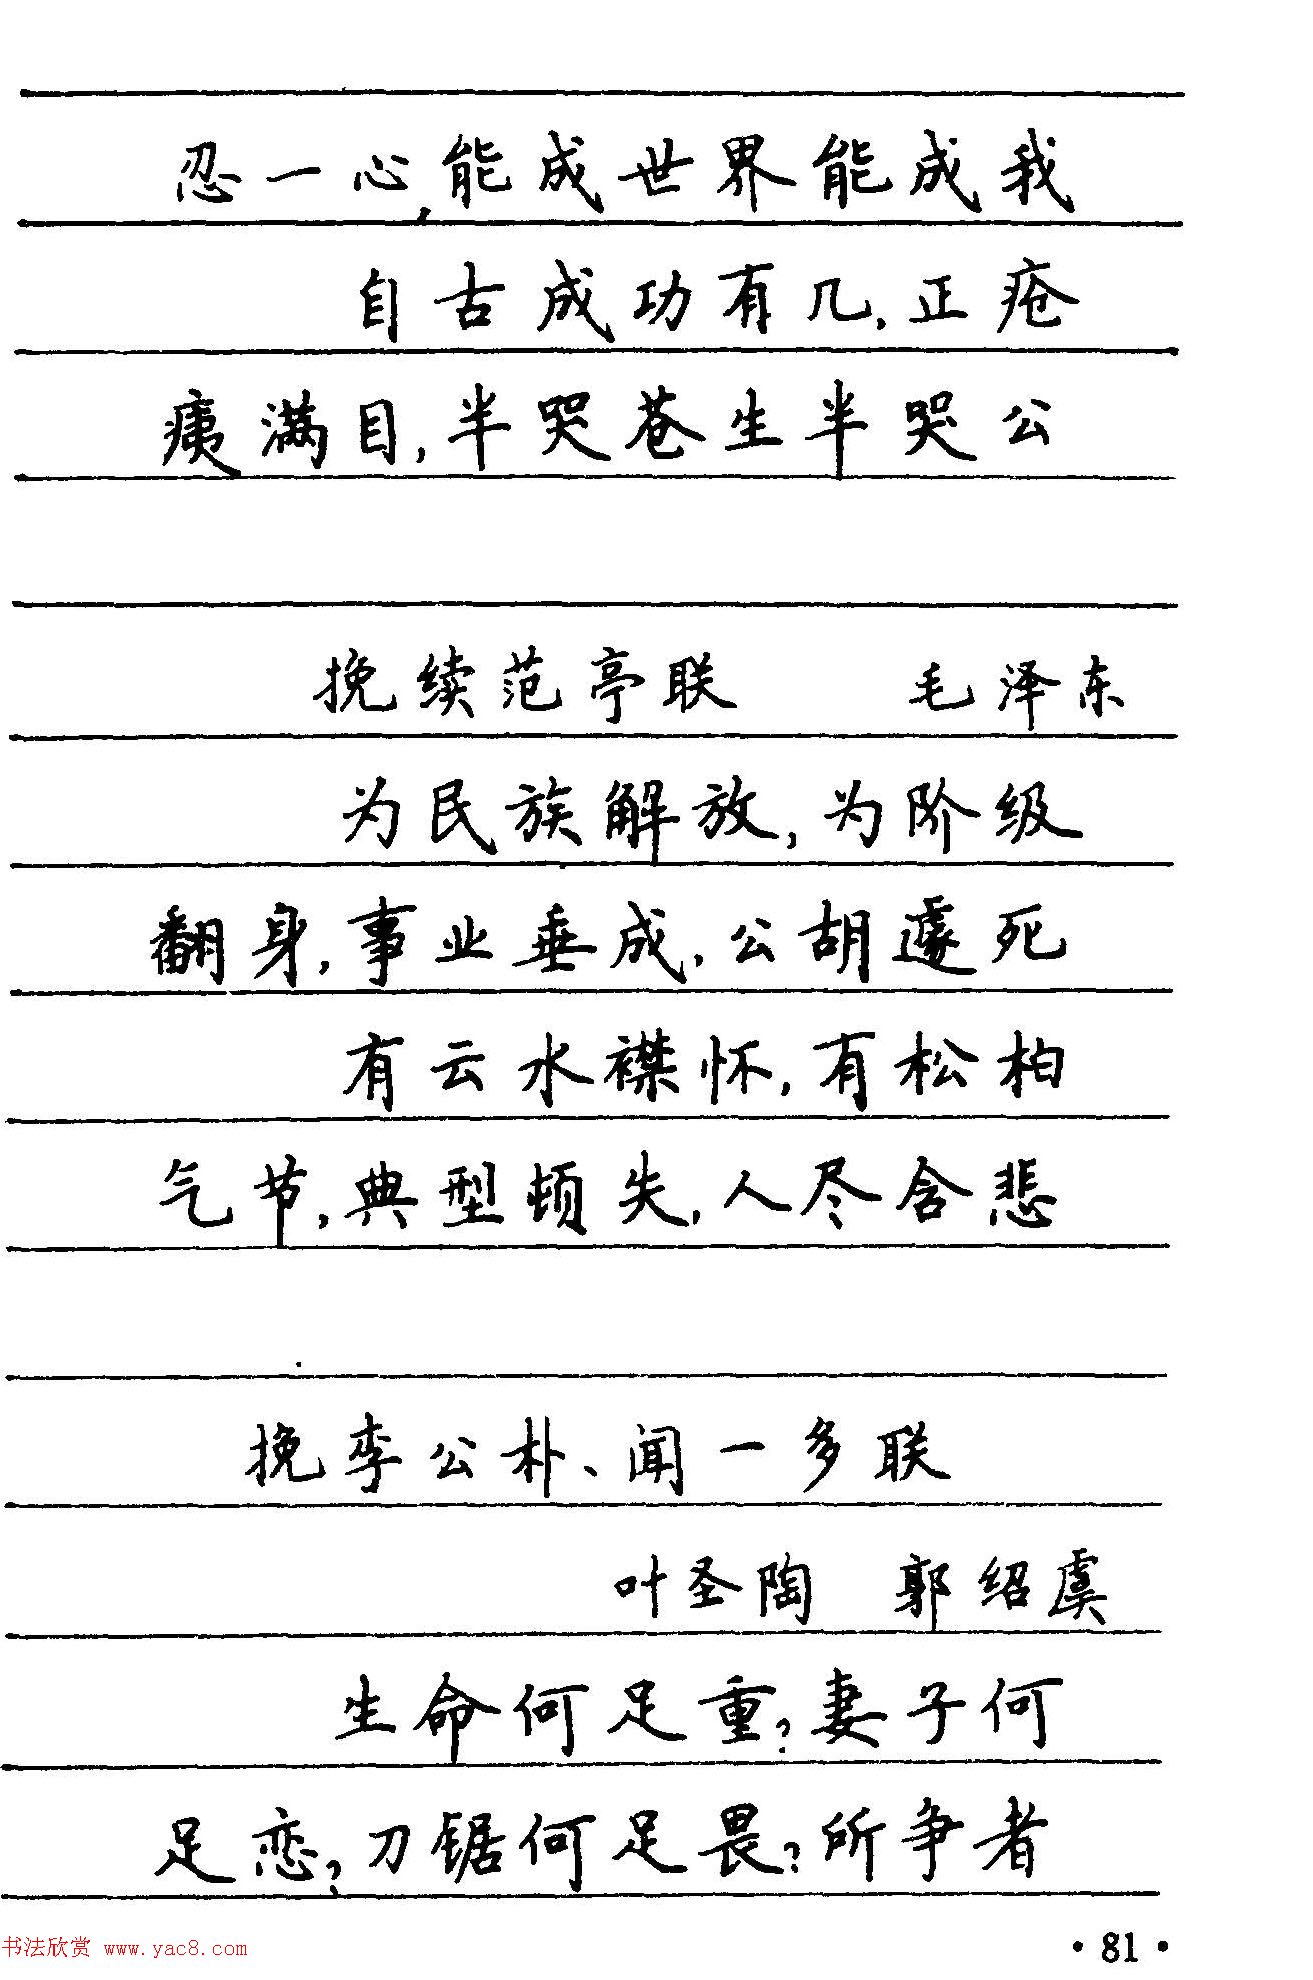 忍一心,能成世界能成我
自古成功有几,正疮
痍满目,半哭苍生半哭公
挽续范亭联 毛泽东
为民族解放,为阶级
翻身,事业垂成,公胡遽死
有云水襟怀,有松柏
气节,典型顿失,人尽含悲
挽李公朴、闻一多联
叶圣陶 郭绍虞
生命何足重?妻子何
足恋?刀锯何足畏?所争者
书法欣赏 www.yac8.com
·81·